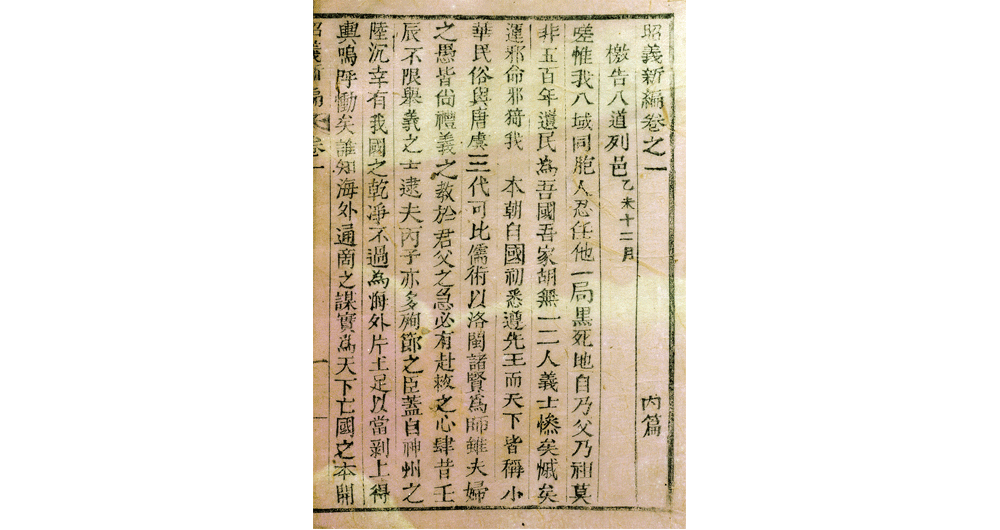 昭義新編卷之一　內篇
檄告八道列邑 乙未十二月
嗟惟我八域同胞人忍任他一局黑死地自乃父乃祖莫
非五百年遺民為吾國吾家胡無一二人義士慘矣慽矣
運邪命邪猗我　本朝自國初悉遵先王而天下皆稱小
華民俗與唐虞三代可比儒術以洛閩諸賢為師雖夫婦
之愚皆尚禮義之教於君父之急必有赴救之心肆昔壬
辰不限舉義之士逮夫丙子亦多殉節之臣蓋自神州之
陸沉幸有我國之乾凈不過為海外片土足以當剝上得
輿嗚呼慟矣誰知海外通商之謀實為天下亡國之本開
昭義新編 卷一 一